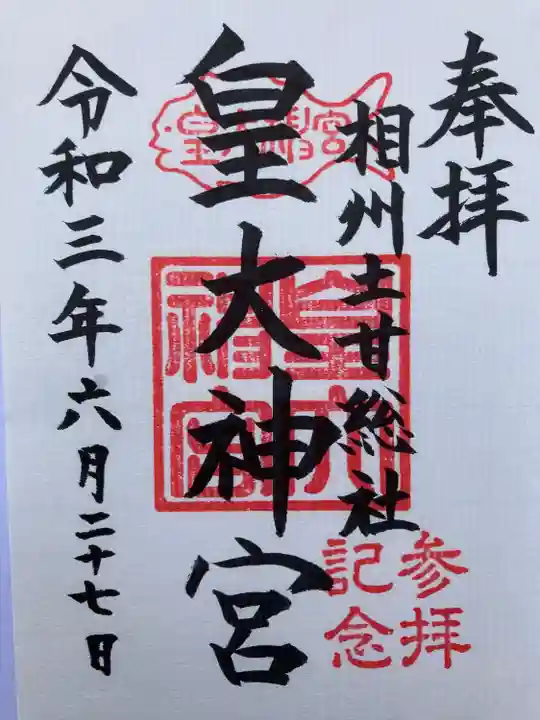 奉拝
相州土甘総社
皇大神宮
令和三年六月二十七日
皇大神宮
皇大
神宮
参拝
記念